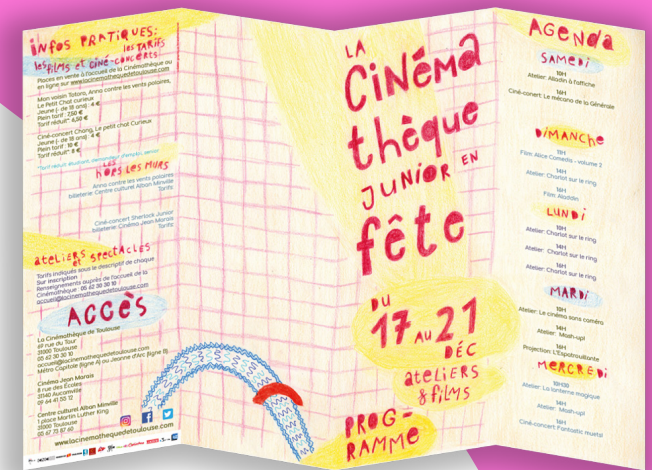 INFOS PRATIQUES:
les TARIFS
les films et ciné-concerts
Places en vente à l'accueil de la Cinémathèque ou
en ligne sur www.lacinemathequedetoulouse.com
Mon voisin Totoro, Anna contre les vents polaires,
Le Petit Chat curieux
Jeune (- de 18 ans) : 4 €
Plein tarif : 7,50 €
Tarif réduit* 6,50 €
Ciné-concert Chang, Le petit chat Curieux
Jeune (- de 18 ans) : 4 €
Plein tarif : 10 €
Tarif réduit* 8 €
*Tarif réduit étudiant, demandeur d'emploi, senior
LES
HORS LES MURS
Anna contre les vents polaires
billeterie: Centre culturel Alban Minville
Tarifs:
Ciné-concert Sherlock Junior
billeterie: Cinéma Jean Marais
Tarifs:
ateliers et spectacles
Tarifs indiqués sous le descriptif de chaque
Sur inscription
Renseignements auprès de l'accueil de la
Cinémathèque : 05 62 30 30 10
accueil@lacinemathequedetoulouse.com
ACCÈS
La Cinémathèque de Toulouse
69 rue du Taur
31000 Toulouse
05 62 30 30 10
accueil@lacinemathequedetoulouse.com
Métro Capitole (ligne A) ou Jeanne d'Arc (ligne B)
Cinéma Jean Marais
8 rue des Écoles
31140 Aucamville
09 64 41 55 12
Centre culturel Alban Minville
1 place Martin Luther King
31000 Toulouse
05 67 73 87 60
www.lacinemathequedetoulouse.com
LA
CINÉMA
thèque
JUNIOR EN
fête
DU
17 AU 21
DÉC
ateliers
& films
PROG-
RAMME
AGENDA
SAMEDI
10H
Atelier: Aladin à l'affiche
16H
Ciné-conert: Le mécano de la Générale
DIMANCHE
11H
Film: Alice Comedia - volume 2
14H
Atelier: Charlot sur le ring
16H
Film: Aladdin
LUNDI
Atelier: Charlot sur le ring
14H
Atelier: Charlot sur le ring
16H
Atelier: Charlot sur le ring
MARDI
10H
Atelier: Le cinéma sans caméra
14H
Atelier: Mash-up!
16H
Projection: L'Épatrouillante
MERCREDI
10H30
Atelier: La lanterne magique
14H
Atelier: Mash-up!
16H
Ciné-concert Fantastic